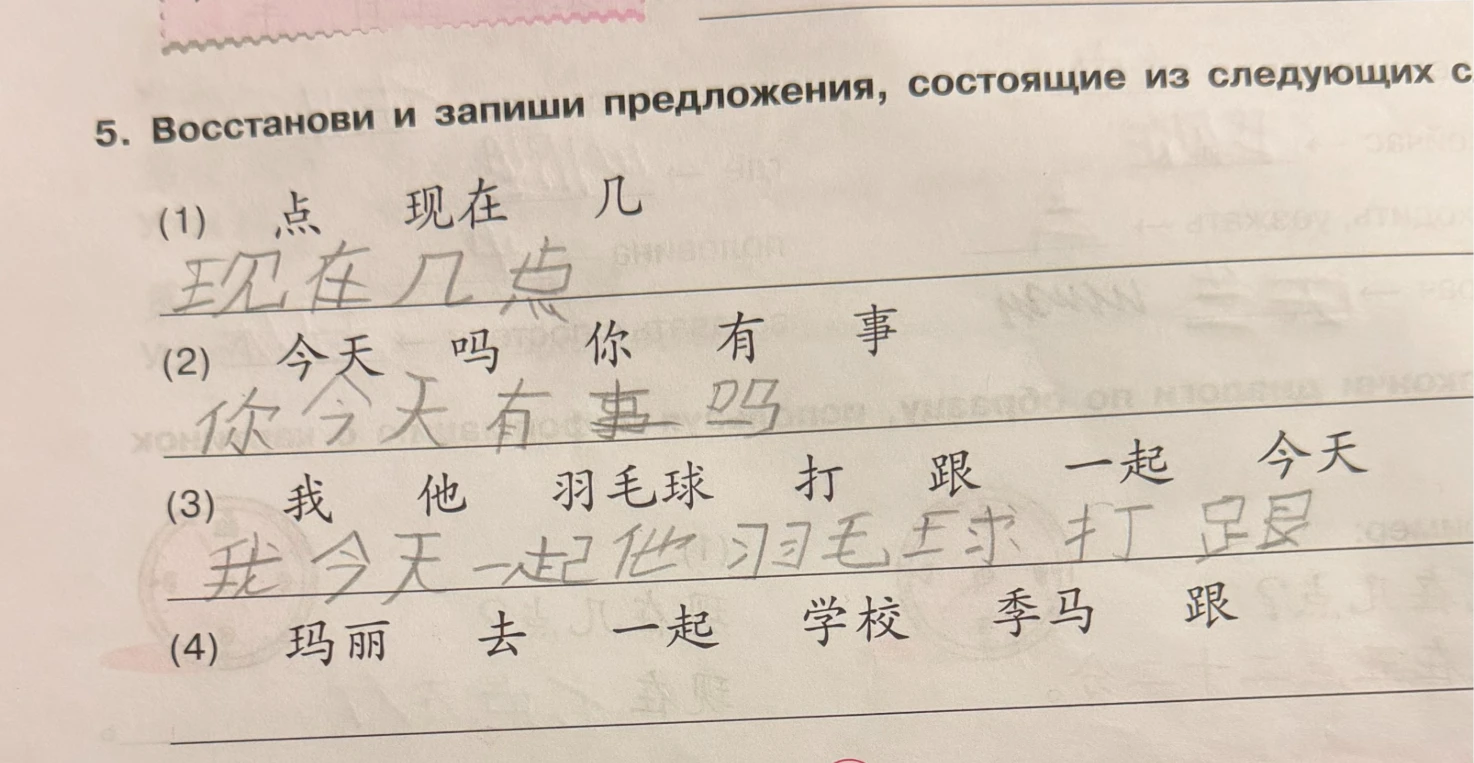 5. Восстанови и запиши предложения, состоящие из следующих с
(1) 点 现在 几
现在几点
(2) 今天 吗 你 有 事
你今天有事吗
(3) 我 他 羽毛球 打 跟 一起 今天
我今天一起他羽毛球打跟
(4) 玛丽 去 一起 学校 季马 跟